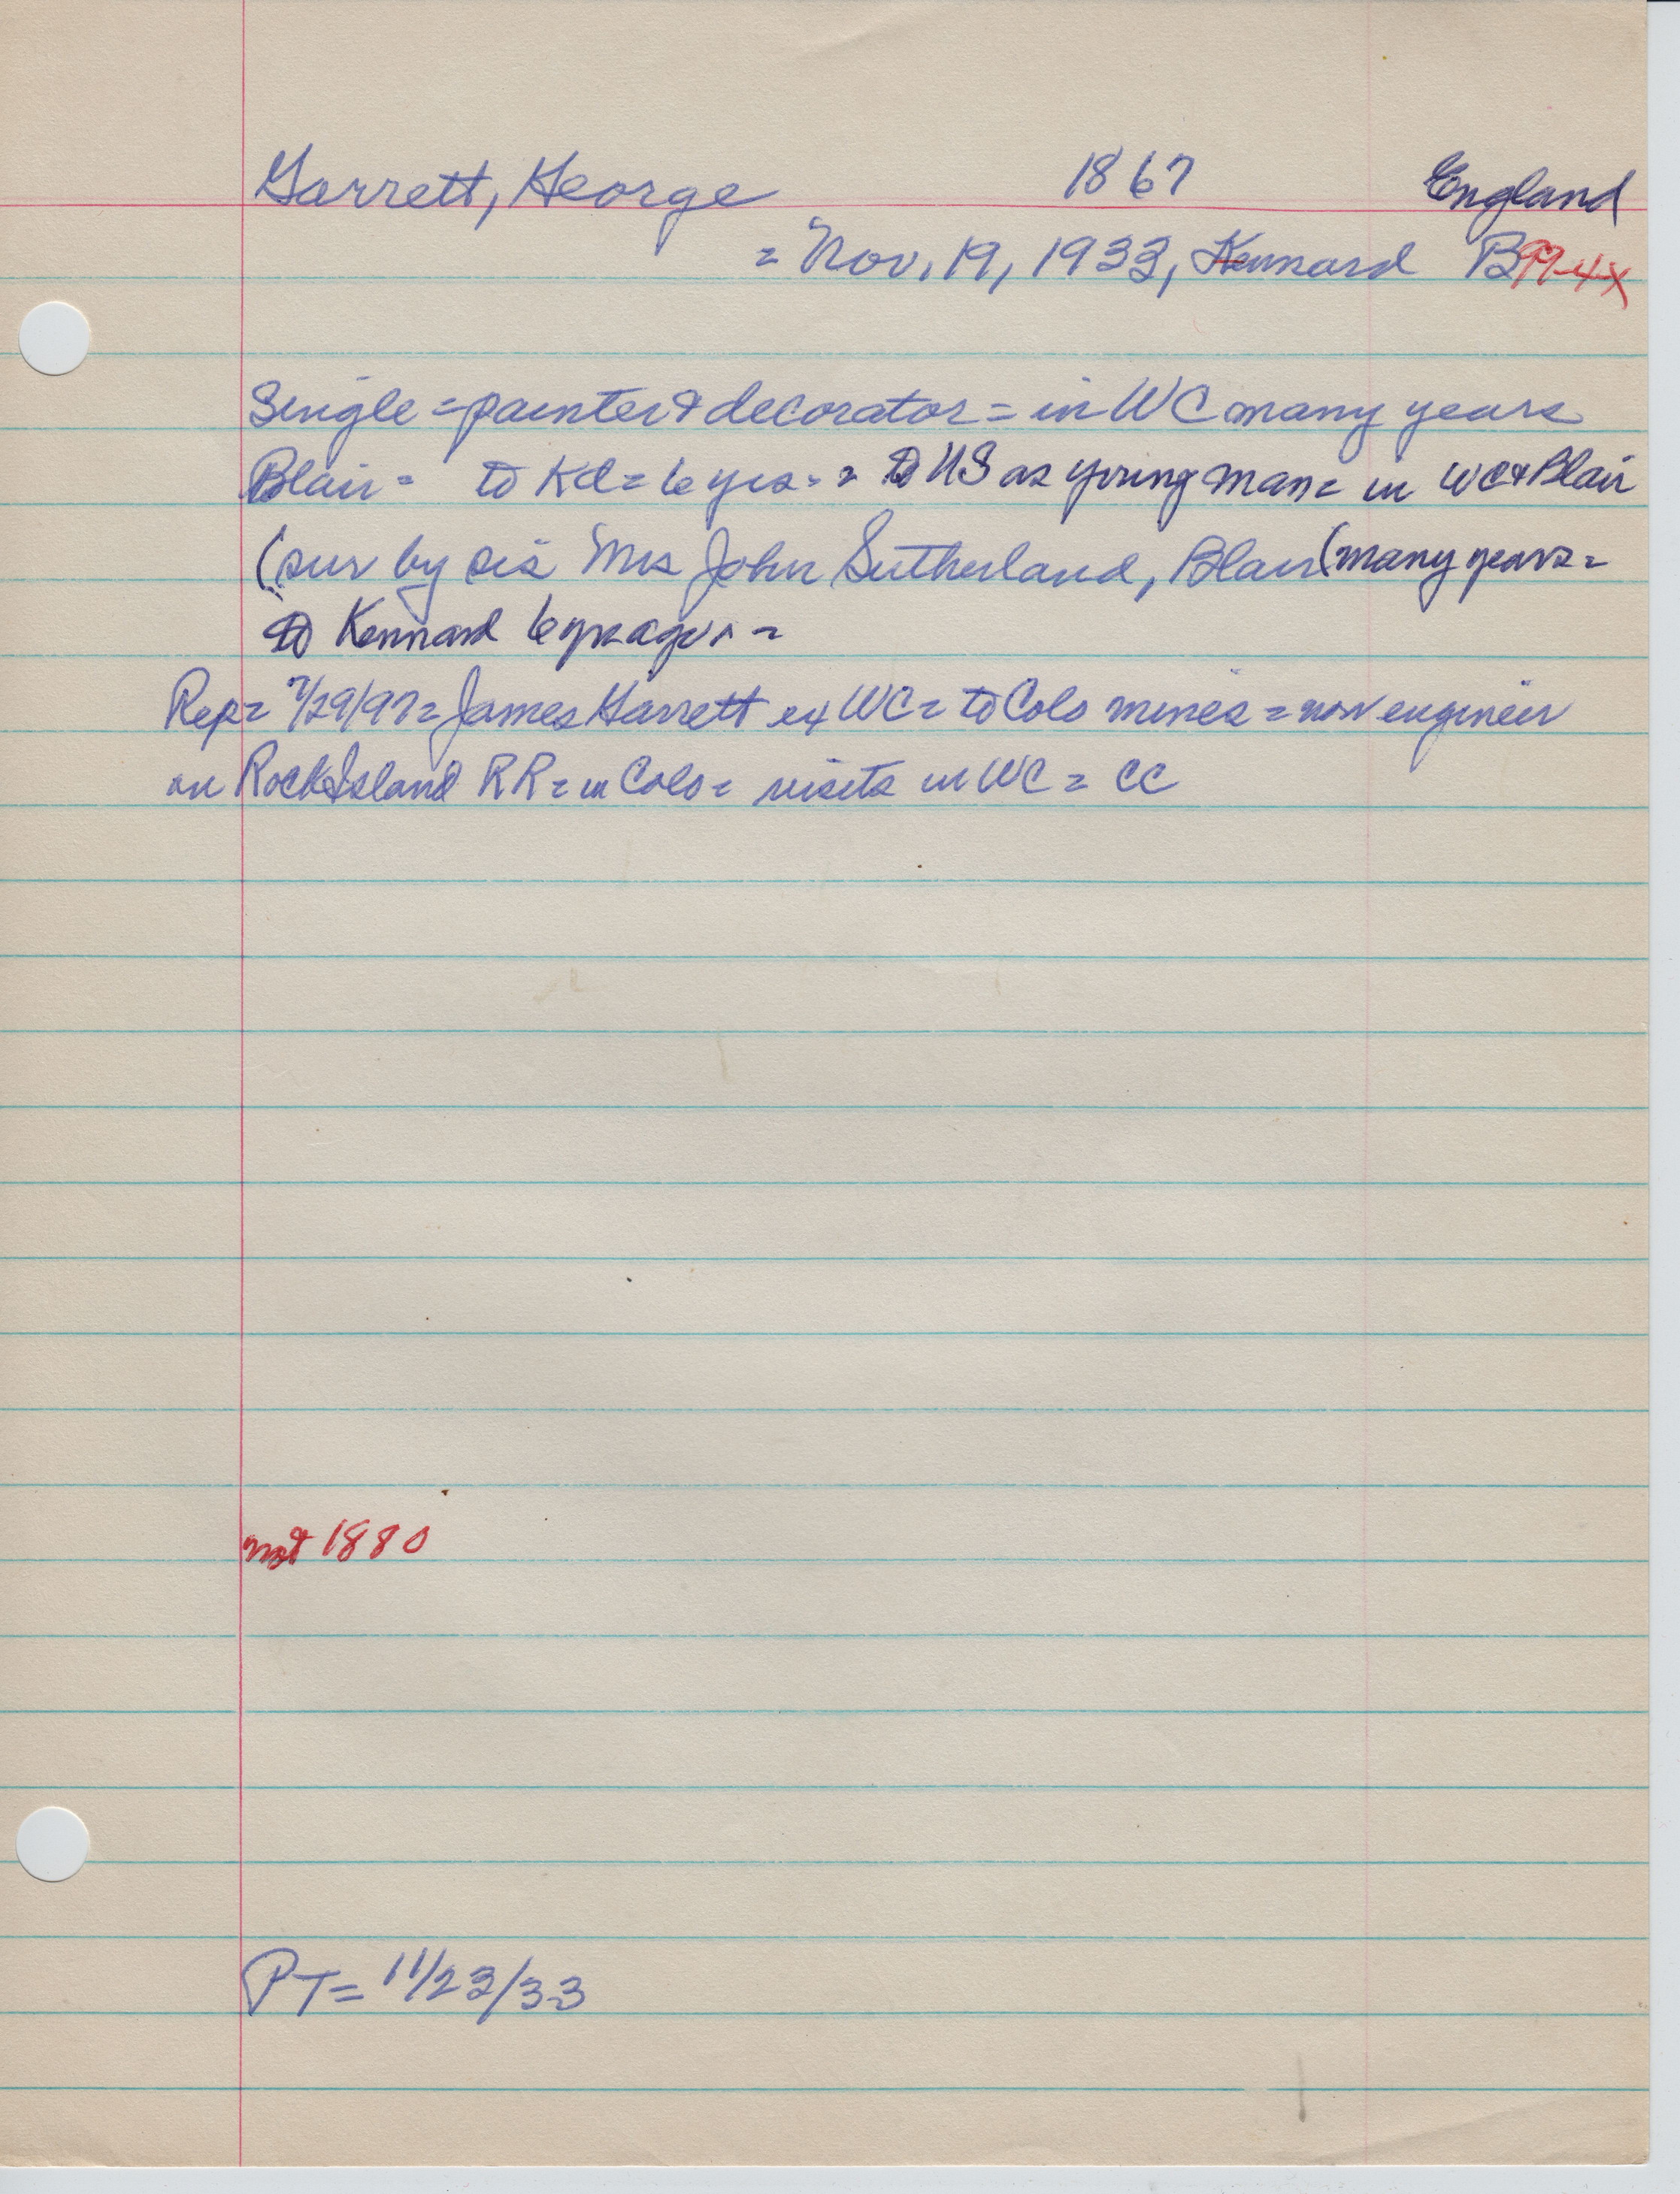 Garrett, George 1867 England
= Nov. 19, 1933, Kennard B
Single = painter & decorator = in WC many years
Blair = to Kd = 6 yrs. = to US as young man = in WC & Blair
(sur by sis Mrs John Sutherland, Blair (many years =
to Kennard 6 yrs ago. =
Rep = 7/29/97 = James Garrett ex WC = to Colo mines = now engineer
on Rock Island RR = in Colo = visits in WC = CC
not 1880
PT = 11/23/33